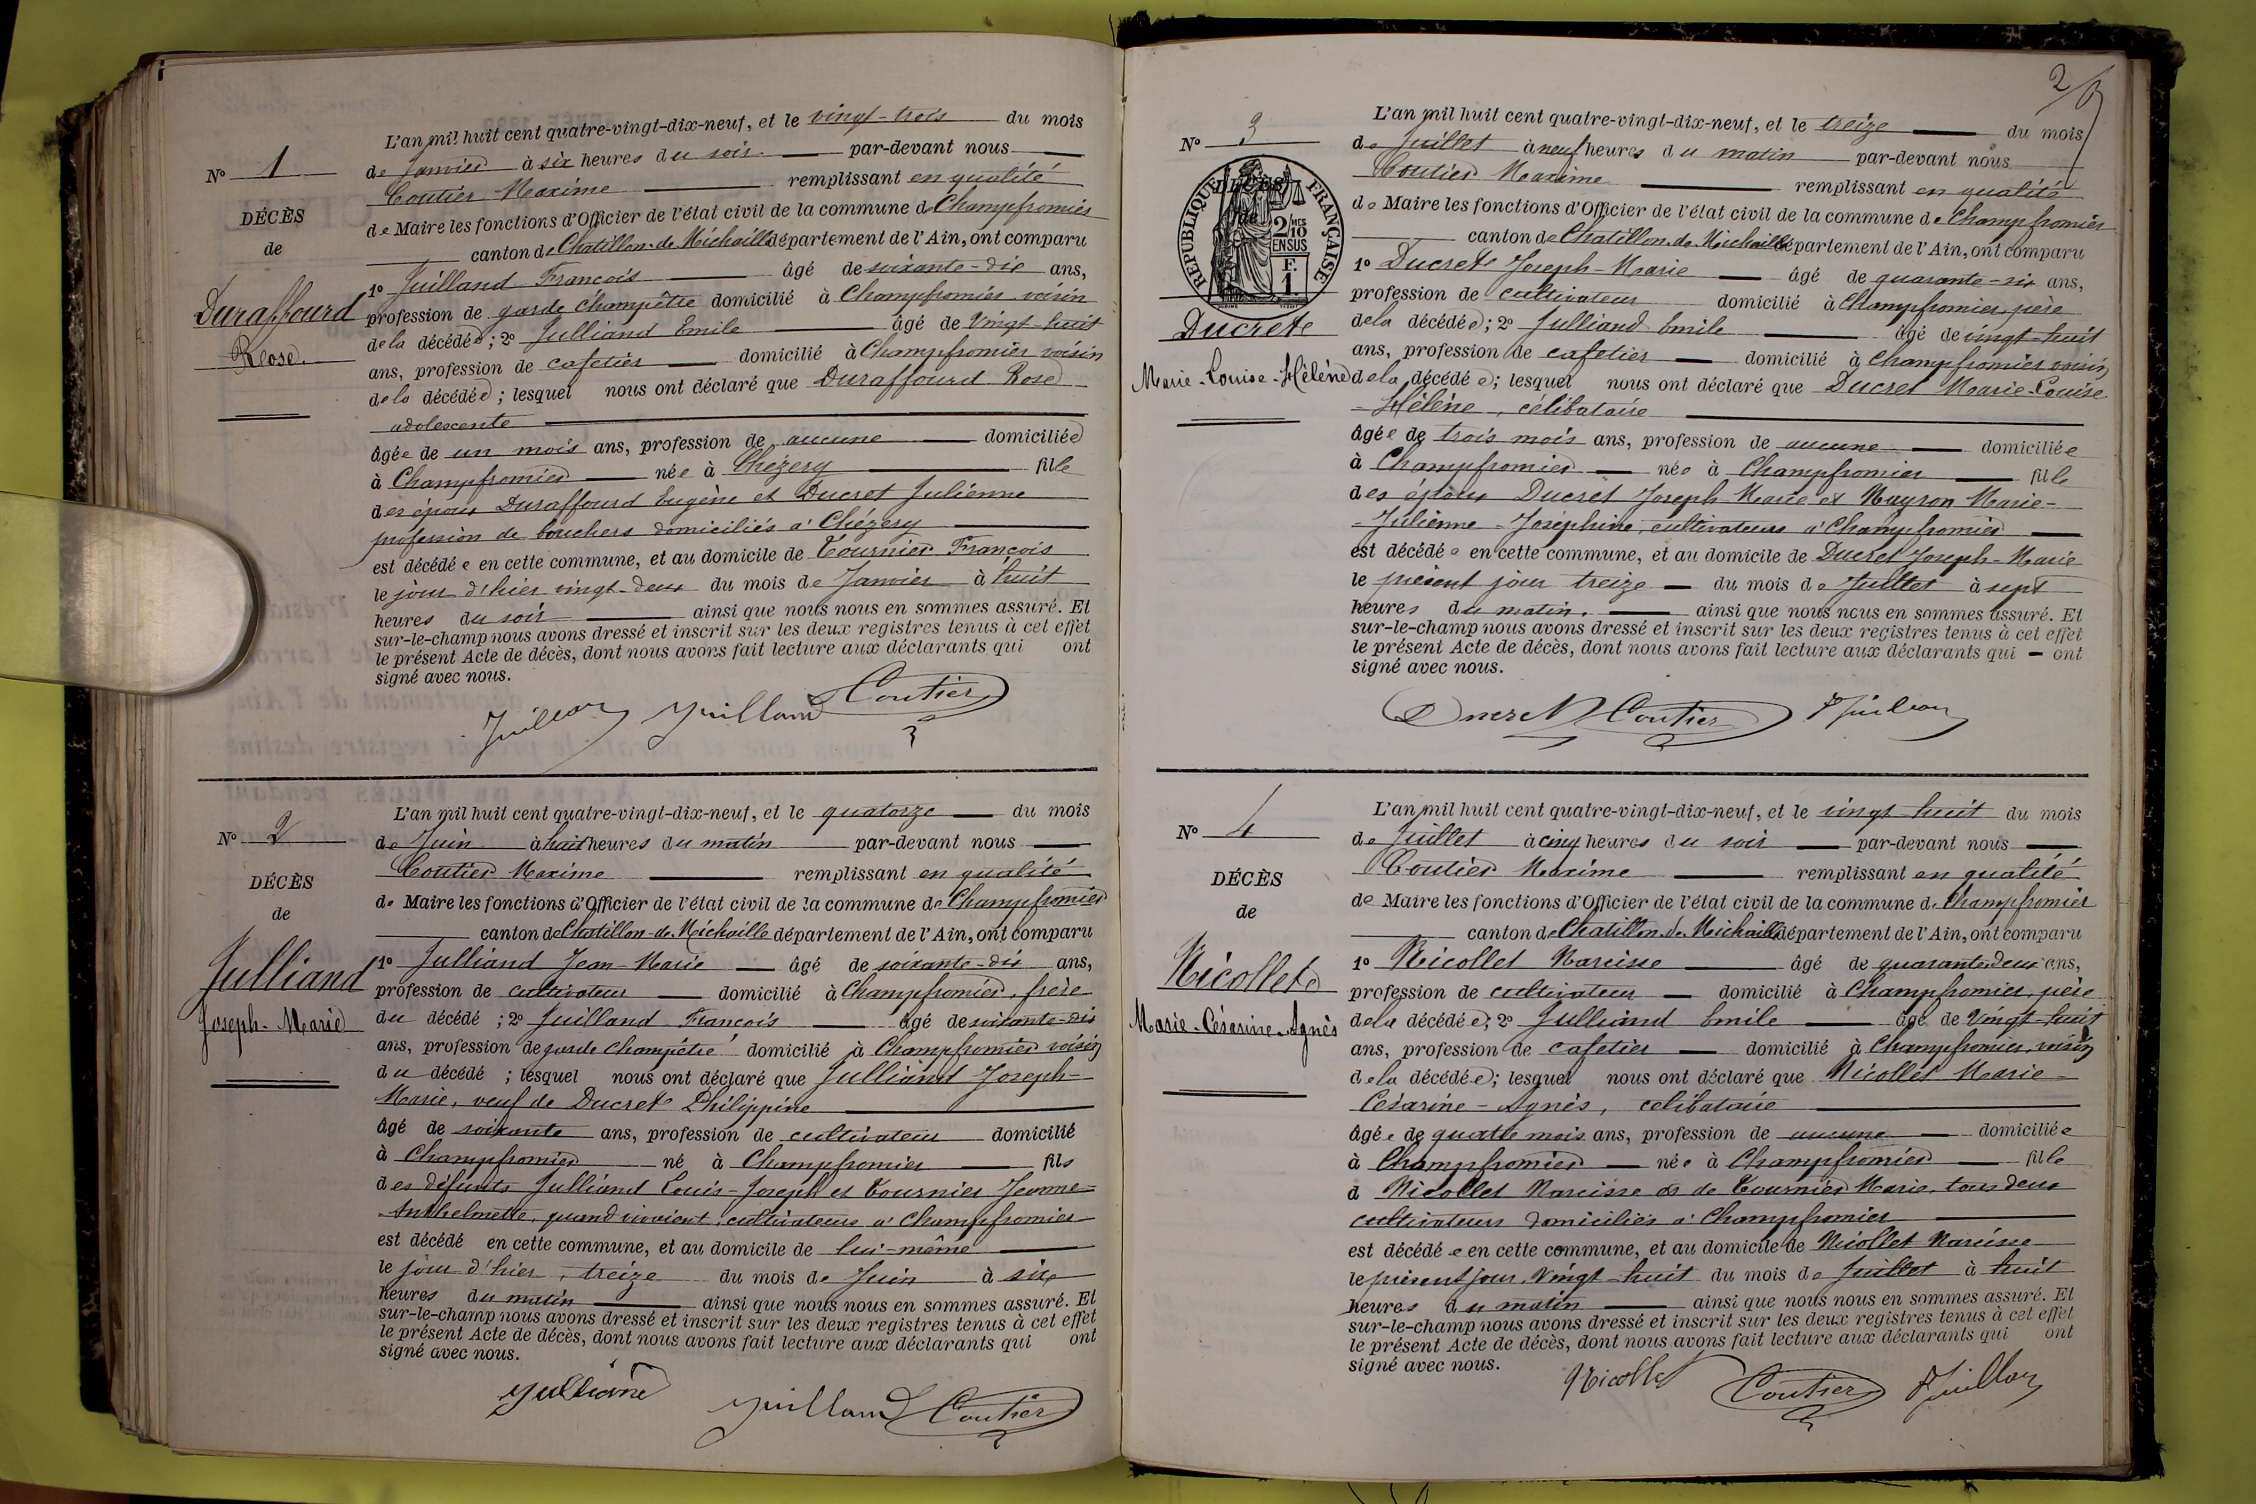 N° 1
DÉCÈS
de
Duraffourd
Rose.
L'an mil huit cent quatre-vingt-dix-neuf, et le vingt-trois du mois
de Janvier à six heures du soir par-devant nous
Coutier Maxime remplissant en qualité
de Maire les fonctions d'Officier de l'état civil de la commune de Champfromier
canton de Chatillon-de-Michaille département de l'Ain, ont comparu
1° Juilland François âgé de soixante-dix ans,
profession de garde champêtre domicilié à Champfromier voisin
de la décédée ; 2° Julliand Emile âgé de vingt-huit
ans, profession de cafetier domicilié à Champfromier voisin
de la décédée ; lesquel nous ont déclaré que Duraffourd Rose
adolescente
âgée de un mois ans, profession de aucune domiciliée
à Champfromier née à Chézery fille
des époux Duraffourd Eugène et Ducret Julienne
profession de bouchers domiciliés à Chézery
est décédée en cette commune, et au domicile de Tournier François
le jour d'hier vingt-deux du mois de Janvier à huit
heures du soir ainsi que nous nous en sommes assuré. Et
sur-le-champ nous avons dressé et inscrit sur les deux registres tenus à cet effet
le présent Acte de décès, dont nous avons fait lecture aux déclarants qui ont
signé avec nous.
Juillan Juilland Coutier
N° 2
DÉCÈS
de
Julliand
Joseph-Marie
L'an mil huit cent quatre-vingt-dix-neuf, et le quatorze du mois
de Juin à huit heures du matin par-devant nous
Coutier Maxime remplissant en qualité
de Maire les fonctions d'Officier de l'état civil de la commune de Champfromier
canton de Chatillon-de-Michaille département de l'Ain, ont comparu
1° Julliand Jean-Marie âgé de soixante-dix ans,
profession de cultivateur domicilié à Champfromier, frère
du décédé ; 2° Juilland François âgé de soixante-dix
ans, profession de garde champêtre domicilié à Champfromier voisin
du décédé ; lesquel nous ont déclaré que Julliand Joseph-
Marie, veuf de Ducret Philippine
âgé de soixante ans, profession de cultivateur domicilié
à Champfromier né à Champfromier fils
des défunts Julliand Louis-Joseph et Tournier Jeanne-
Anthelmette, quand vivaient, cultivateurs à Champfromier
est décédé en cette commune, et au domicile de lui-même
le jour d'hier, treize du mois de Juin à six
heures du matin ainsi que nous nous en sommes assuré. Et
sur-le-champ nous avons dressé et inscrit sur les deux registres tenus à cet effet
le présent Acte de décès, dont nous avons fait lecture aux déclarants qui ont
signé avec nous.
Julliand Juilland Coutier
2
N° 3
DÉCÈS
de
RÉPUBLIQUE FRANÇAISE
2/10
EN SUS
F.
1
Ducret
Marie-Louise-Hélène
L'an mil huit cent quatre-vingt-dix-neuf, et le treize du mois
de Juillet à neuf heures du matin par-devant nous
Coutier Maxime remplissant en qualité
de Maire les fonctions d'Officier de l'état civil de la commune de Champfromier
canton de Chatillon-de-Michaille département de l'Ain, ont comparu
1° Ducret Joseph-Marie âgé de quarante-six ans,
profession de cultivateur domicilié à Champfromier, père
de la décédée ; 2° Julliand Emile âgé de vingt-huit
ans, profession de cafetier domicilié à Champfromier voisin
de la décédée ; lesquel nous ont déclaré que Ducret Marie-Louise
-Hélène, célibataire
âgée de trois mois ans, profession de aucune domiciliée
à Champfromier née à Champfromier fille
des époux Ducret Joseph-Marie et Meyron Marie-
-Julienne-Joséphine, cultivateurs à Champfromier
est décédée en cette commune, et au domicile de Ducret Joseph-Marie
le présent jour treize du mois de Juillet à sept
heures du matin. ainsi que nous nous en sommes assuré. Et
sur-le-champ nous avons dressé et inscrit sur les deux registres tenus à cet effet
le présent Acte de décès, dont nous avons fait lecture aux déclarants qui ont
signé avec nous.
Ducret Coutier Juillan
N° 4
DÉCÈS
de
Nicollet
Marie-Césarine-Agnès
L'an mil huit cent quatre-vingt-dix-neuf, et le vingt-huit du mois
de Juillet à cinq heures du soir par-devant nous
Coutier Maxime remplissant en qualité
de Maire les fonctions d'Officier de l'état civil de la commune de Champfromier
canton de Chatillon-de-Michaille département de l'Ain, ont comparu
1° Nicollet Narcisse âgé de quarante-deux ans,
profession de cultivateur domicilié à Champfromier, père
de la décédée ; 2° Julliand Emile âgé de vingt-huit
ans, profession de cafetier domicilié à Champfromier, voisin
de la décédée ; lesquel nous ont déclaré que Nicollet Marie-
Césarine-Agnès, célibataire
âgée de quatre mois ans, profession de aucune domiciliée
à Champfromier née à Champfromier fille
d Nicollet Narcisse et de Tournier Marie, tous deux
cultivateurs domiciliés à Champfromier
est décédée en cette commune, et au domicile de Nicollet Narcisse
le présent jour, vingt-huit du mois de Juillet à huit
heures du matin ainsi que nous nous en sommes assuré. Et
sur-le-champ nous avons dressé et inscrit sur les deux registres tenus à cet effet
le présent Acte de décès, dont nous avons fait lecture aux déclarants qui ont
signé avec nous.
Nicollet Coutier Juillan